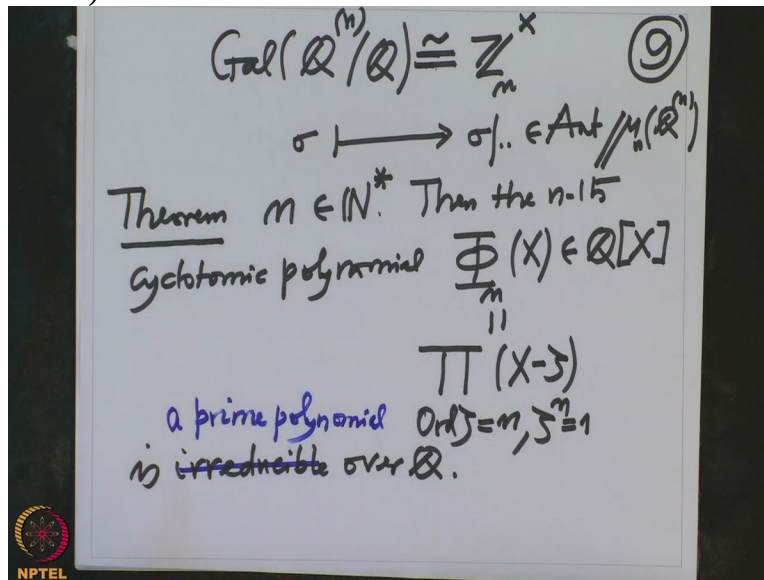 Gal(ℚ⁽ⁿ⁾/ℚ) ≅ ℤₙˣ ⑨
σ ↦ σ|.. ∈ Aut μₙ(ℚ⁽ⁿ⁾)
Theorem n ∈ ℕ*. Then the n-th
cyclotomic polynomial Φₙ(X) ∈ ℚ[X]
||
∏ (X-ζ)
a prime polynomial Ord ζ = n, ζⁿ = 1
is irreducible over ℚ.
NPTEL